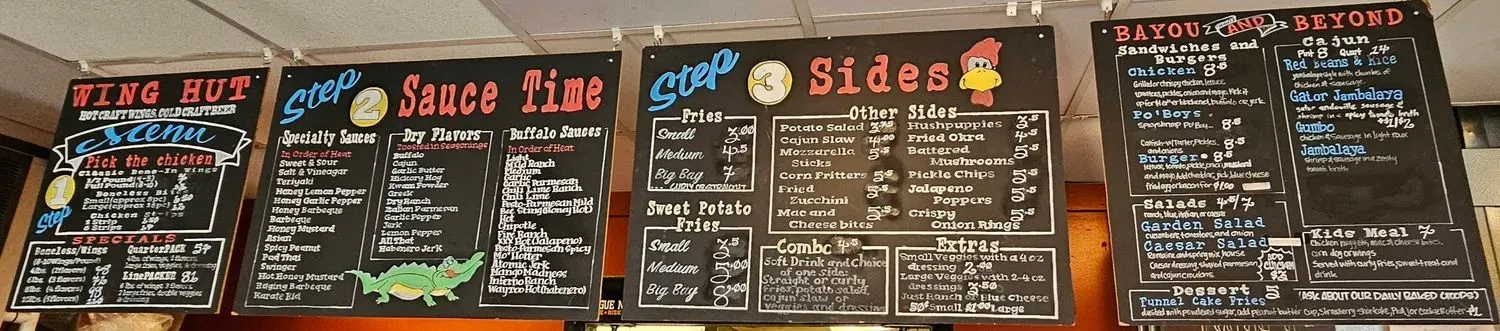 WING HUT
HOT CRAFT WINGS, COLD CRAFT BEER
Menu
Step 1
Pick the chicken
Classic Bone-In Wings
1/2 Pound
Full Pound
Boneless
Small
Large
Chicken Strips
Strips
SPECIALS
Boneless/Wings
QuarterPACK 54
4lbs. of wings, 2 flavors,
large fries, veggies, & dressing
6lbs of wings 3 flavors
2 large fries, double veggies
& dressing
Step 2 Sauce Time
Specialty Sauces
In Order of Heat
Sweet & Sour
Salt & Vinegar
Teriyaki
Honey Lemon Pepper
Honey Garlic Pepper
Honey Barbeque
Barbeque
Honey Mustard
Asian
Spicy Peanut
Pad Thai
Swinger
Hot Honey Mustard
Raging Barbeque
Karate Kid
Dry Flavors
Toasted in Seasonings
Buffalo
Cajun
Garlic Butter
Hickory Hog
Kwam Powder
Greek
Dry Ranch
Italian Parmesan
Garlic Pepper
Jerk
Lemon Pepper
All That
Habanero Jerk
Buffalo Sauces
In Order of Heat
Light
Mild Ranch
Medium
Garlic
Garlic Parmesan
Chili Lime Ranch
Chili Lime
Pesto-Parmesan Mild
Bee Sting (Honey Hot)
Hot
Chipotle
Fire Ranch
XXX Hot (Jalapeno)
Pesto-Parmesan Spicy
Mo' Hotter
Atomic Jerk
Mango Madness
Inferno Ranch
Wayzoo Hot (habenero)
Step 3 Sides
Fries
Small 3.00
Medium 4.5
Big Bag 7
CURLY OR STRAIGHT
Sweet Potato
Fries
Small 3.5
Medium
Big Bag
Other Sides
Potato Salad
Cajun Slaw
Mozzarella 5.5
Sticks
Corn Fritters
Fried
Zucchini
Mac and
Cheese bites
Hushpuppies 3.5
Fried Okra 4.5
Battered 5.5
Mushrooms
Pickle Chips 5.5
Jalapeno 5.5
Poppers
Crispy 5.5
Onion Rings
Combo 4.5
Soft Drink and Choice
of one side:
Straight or curly
Fries, potato salad,
cajun slaw or
veggies and dressing
Extras
Small Veggies with a 4oz
dressing 2.00
Large Veggies with 2-4oz
dressings 3.50
Just Ranch or Blue Cheese
50¢ Small $1.00 Large
BAYOU AND BEYOND
Sandwiches and
Burgers
Chicken 8.5
Grilled or crispy chicken, lettuce,
tomatoes, pickles, onion and mayo. Pick it
up for hot or blackened, buffalo or jerk.
Po'Boys 8.5
Burger 8.5
lettuce, tomato, pickle, onion, mustard
Salads 4.5/7
ranch, blue, italian, or caesar
Garden Salad
cucumbers, tomatoes, and onion
Caesar Salad
Romaine and spring mix house
Caesar dressing, shaved parmesan
and cajun croutons.
ADD
CHICKEN
Dessert
Funnel Cake Fries 5
dusted with powdered sugar, add peanut butter cup, Strawberry Shortcake,
Cajun
Pint 8 Quart 14
Red Beans & Rice
jambalaya style with chunks of
chicken & sausage
Gator Jambalaya
gator andouille sausage &
shrimp in a spicy tomato broth
Gumbo
chicken & sausage in light roux
Jambalaya
shrimp & sausage in a zesty
tomato broth
Kids Meal 7
Chicken nuggets, mac & cheese bites,
corn dog or wings
Served with curly fries, sweet treat and
drink
(ASK ABOUT OUR DAILY BAKED GOODS)